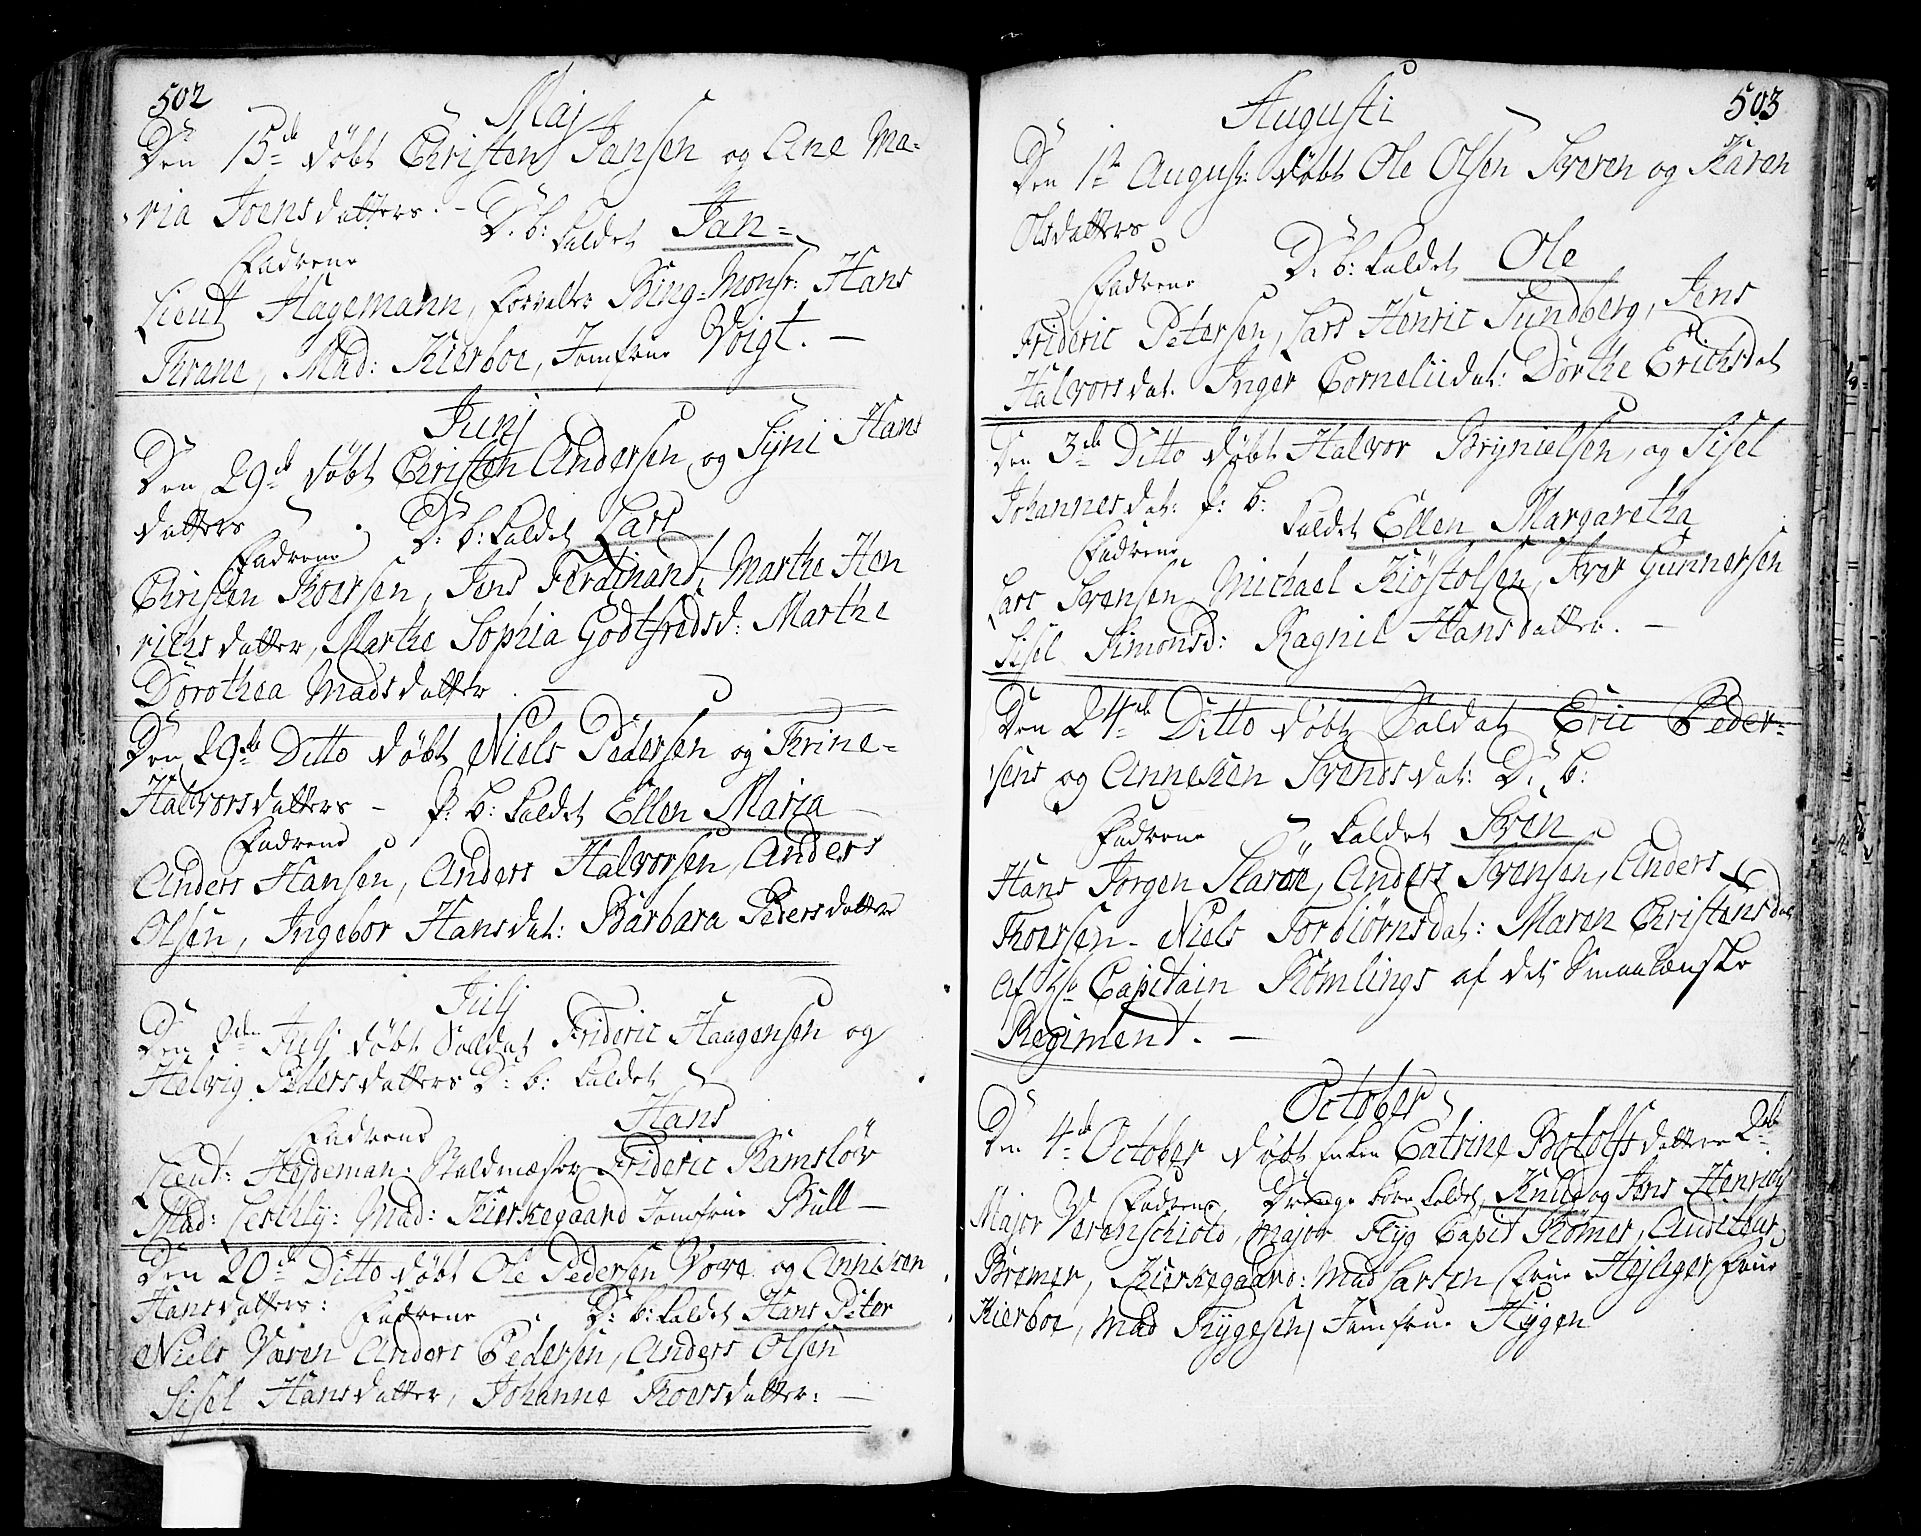 502
Maj
Den 15de døbt Christen Jansen og Ane Ma=
ria Joensdatters. – D: b: kaldet Jan=
Fadrene
Lieut Hagemann, forvalter Bing= Monsr: Hans
Krane, Mad: Kierboe, Jomfrue Voigt. –
Junj
Den 29de døbt Christen Andersen og Syni Hans
datters D: b: kaldet Lars
Fadrene
Christen Thoersen, Jens Ferdinand, Marthe Hen
richs datter, Marthe Sophia Godtfredsd: Marthe
Dorothea Madsdatter. –
Den 29de Ditto døbt Niels Pedersen og Thrine=
Halvorsdatters – p: b: kaldet Ellen Maria
Fadrene
Anders Hansen, Anders Halvorsen, Anders
Olsen, Ingebor Hansdat: Barbara Pedersdatter
Julj
Den Julj døbt Soldat Frideric Haagensen og
Helvig Pedersdatters D: b: kaldet
Hans
Fadrene
Lieut: Hejdeman: Staldmæster Frideric Ramsløv
Mad: Mad: Kierkegaard Jomfrue Bull –
Den 20de Ditto døbt Ole Pedersen Vove og Anniken
Hansdatters: D: b: kaldet Hans Peter
Fadrene
Niels Væren Anders Pedersen, Anders Olsen
Sisel Hansdatter, Johanne Thoersdatter: –
503
Augusti
Den 1te August: døbt Ole Olsen Sveren og Karen
Olsdatters
D: b: kaldet Ole
Fadrene
Frideric Petersen, Lars Henric Sundberg, Jens
Halvorsdat. Inger Corneliidat: Dorthe Erichsdat
Den 3de Ditto døbt Halvor Brynielsen, og Sisel
Johannesdat: p: b:
kaldet Ellen Margaretha
Fadrene
Lars Svensen, Michael Kiøstolsen, Iver Gunnersen
Sisel Simonsd: Ragnil Hansdatter. –
Den 24de Ditto døbt Soldat Eric Peder=
sens og Anneken Svendsdat: D: b:
kaldet Sven
Fadrene
Hans Jorgen Skarøe, Anders Svensen, Anders
Thoersen – Niels Torbiørnsdat: Maren Christensdat
Af Capitain Kømlings af det Smaalenske
Regiment. –
October
Den 4de October døbt Enken Catrine Botolfsdatter 2de
Drenge børn kaldet, Knud og Jens Henrich
Fadrene,
Major Verenschiold, Major Flyg Capit Rømer, Auditeur
Bremer, Kierkegaard: Mad Larsen Frue Hejliger Frue
Kierboe, Mad Thygesen, Jomfrue Hygen